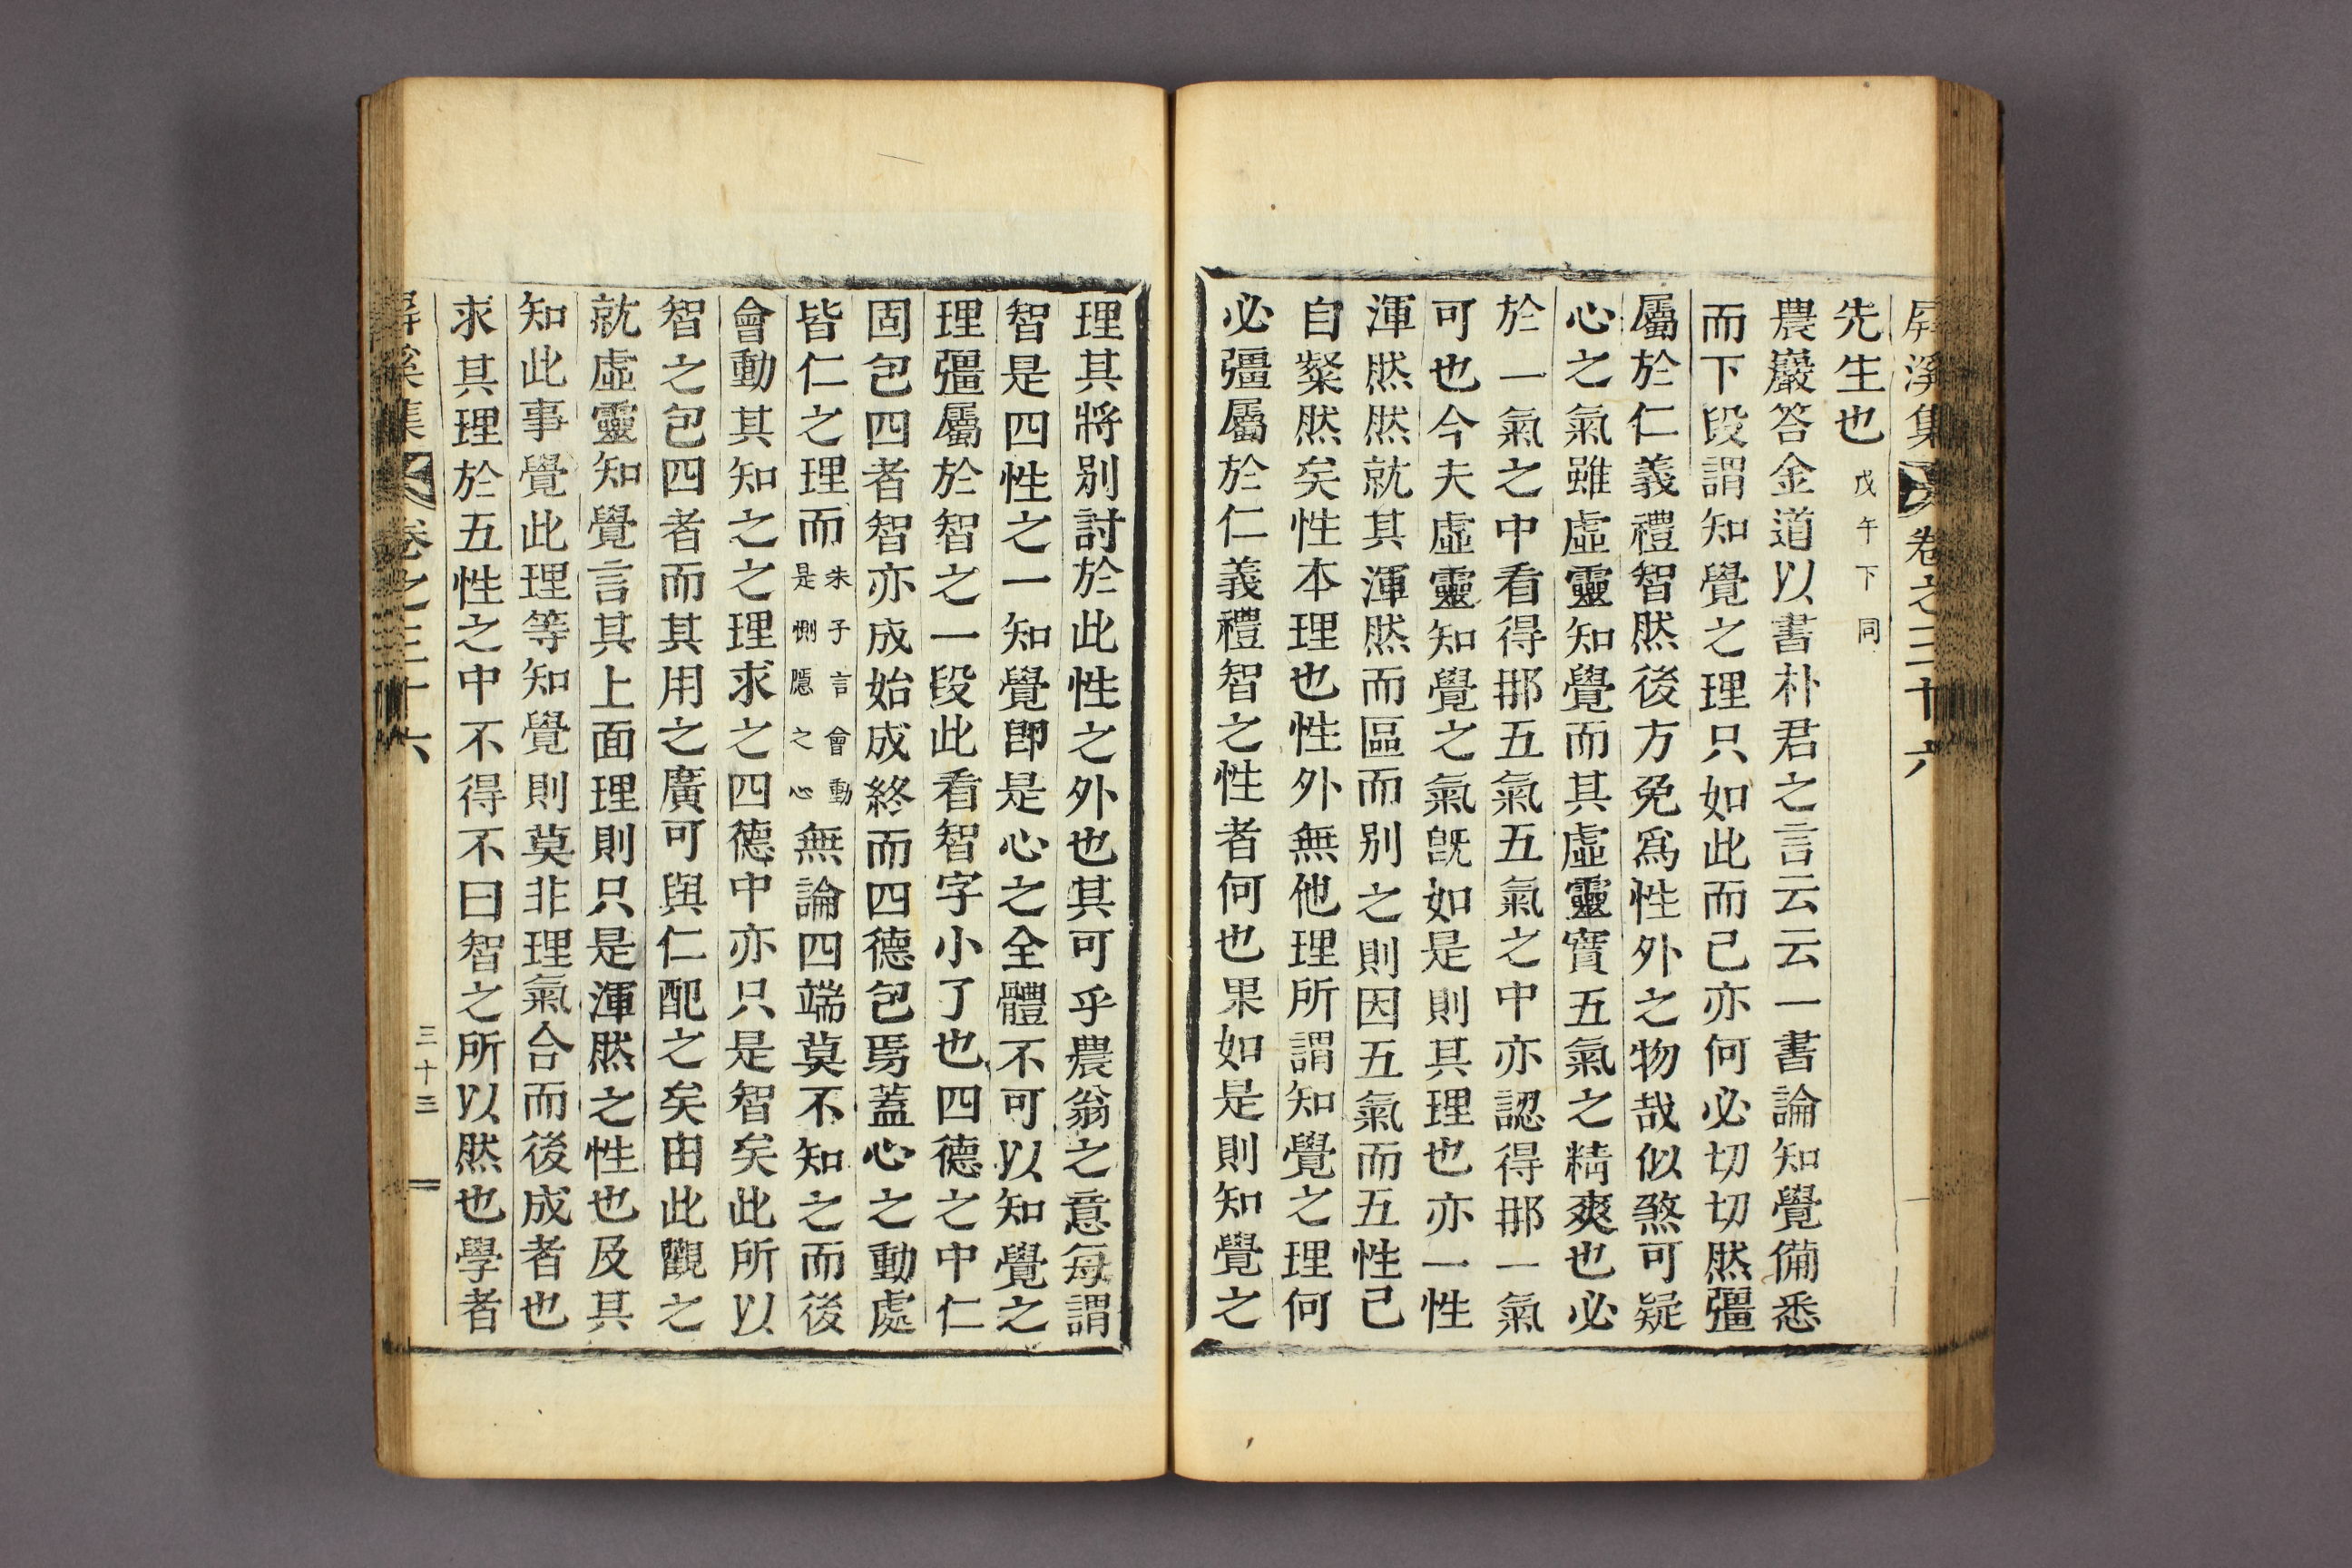 屏溪集 卷之三十六
先生也 戊午下同
農巖答金道以書朴君之言云云一書論知覺備悉
而下段謂知覺之理只如此而已亦何必切切然彊
屬於仁義禮智然後方免爲性外之物哉似煞可疑
心之氣雖虛靈知覺而其虛靈實五氣之精爽也必
於一氣之中看得那五氣五氣之中亦認得那一氣
可也今夫虛靈知覺之氣旣如是則其理也亦一性
渾然然就其渾然而區而別之則因五氣而五性已
自粲然矣性本理也性外無他理所謂知覺之理何
必彊屬於仁義禮智之性者何也果如是則知覺之
理其將別討於此性之外也其可乎農翁之意每謂
智是四性之一知覺卽是心之全體不可以知覺之
理彊屬於智之一段此看智字小了也四德之中仁
固包四者智亦成始成終而四德包焉蓋心之動處
皆仁之理而 朱子言會動
是惻隱之心 無論四端莫不知之而後
會動其知之之理求之四德中亦只是智矣此所以
智之包四者而其用之廣可與仁配之矣由此觀之
就虛靈知覺言其上面理則只是渾然之性也及其
知此事覺此理等知覺則莫非理氣合而後成者也
求其理於五性之中不得不曰智之所以然也學者
屏溪集 卷之三十六 三十三